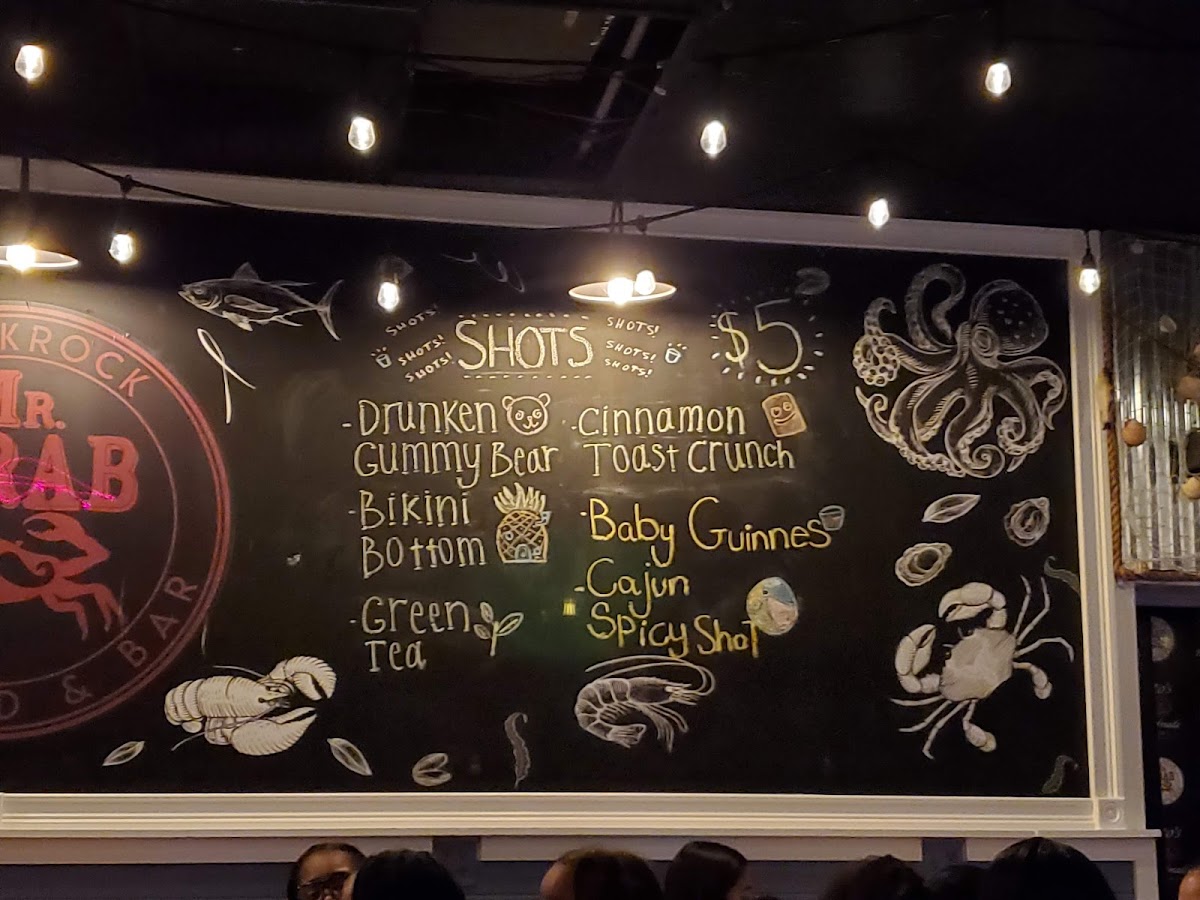 KROCK
MR.
RAB
& BAR
SHOTS!
SHOTS!
SHOTS!
SHOTS
SHOTS!
SHOTS!
SHOTS!
$5
- Drunken
Gummy Bear
- Bikini
Bottom
- Green
Tea
- Cinnamon
Toast Crunch
- Baby Guinnes
- Cajun
Spicy Shot